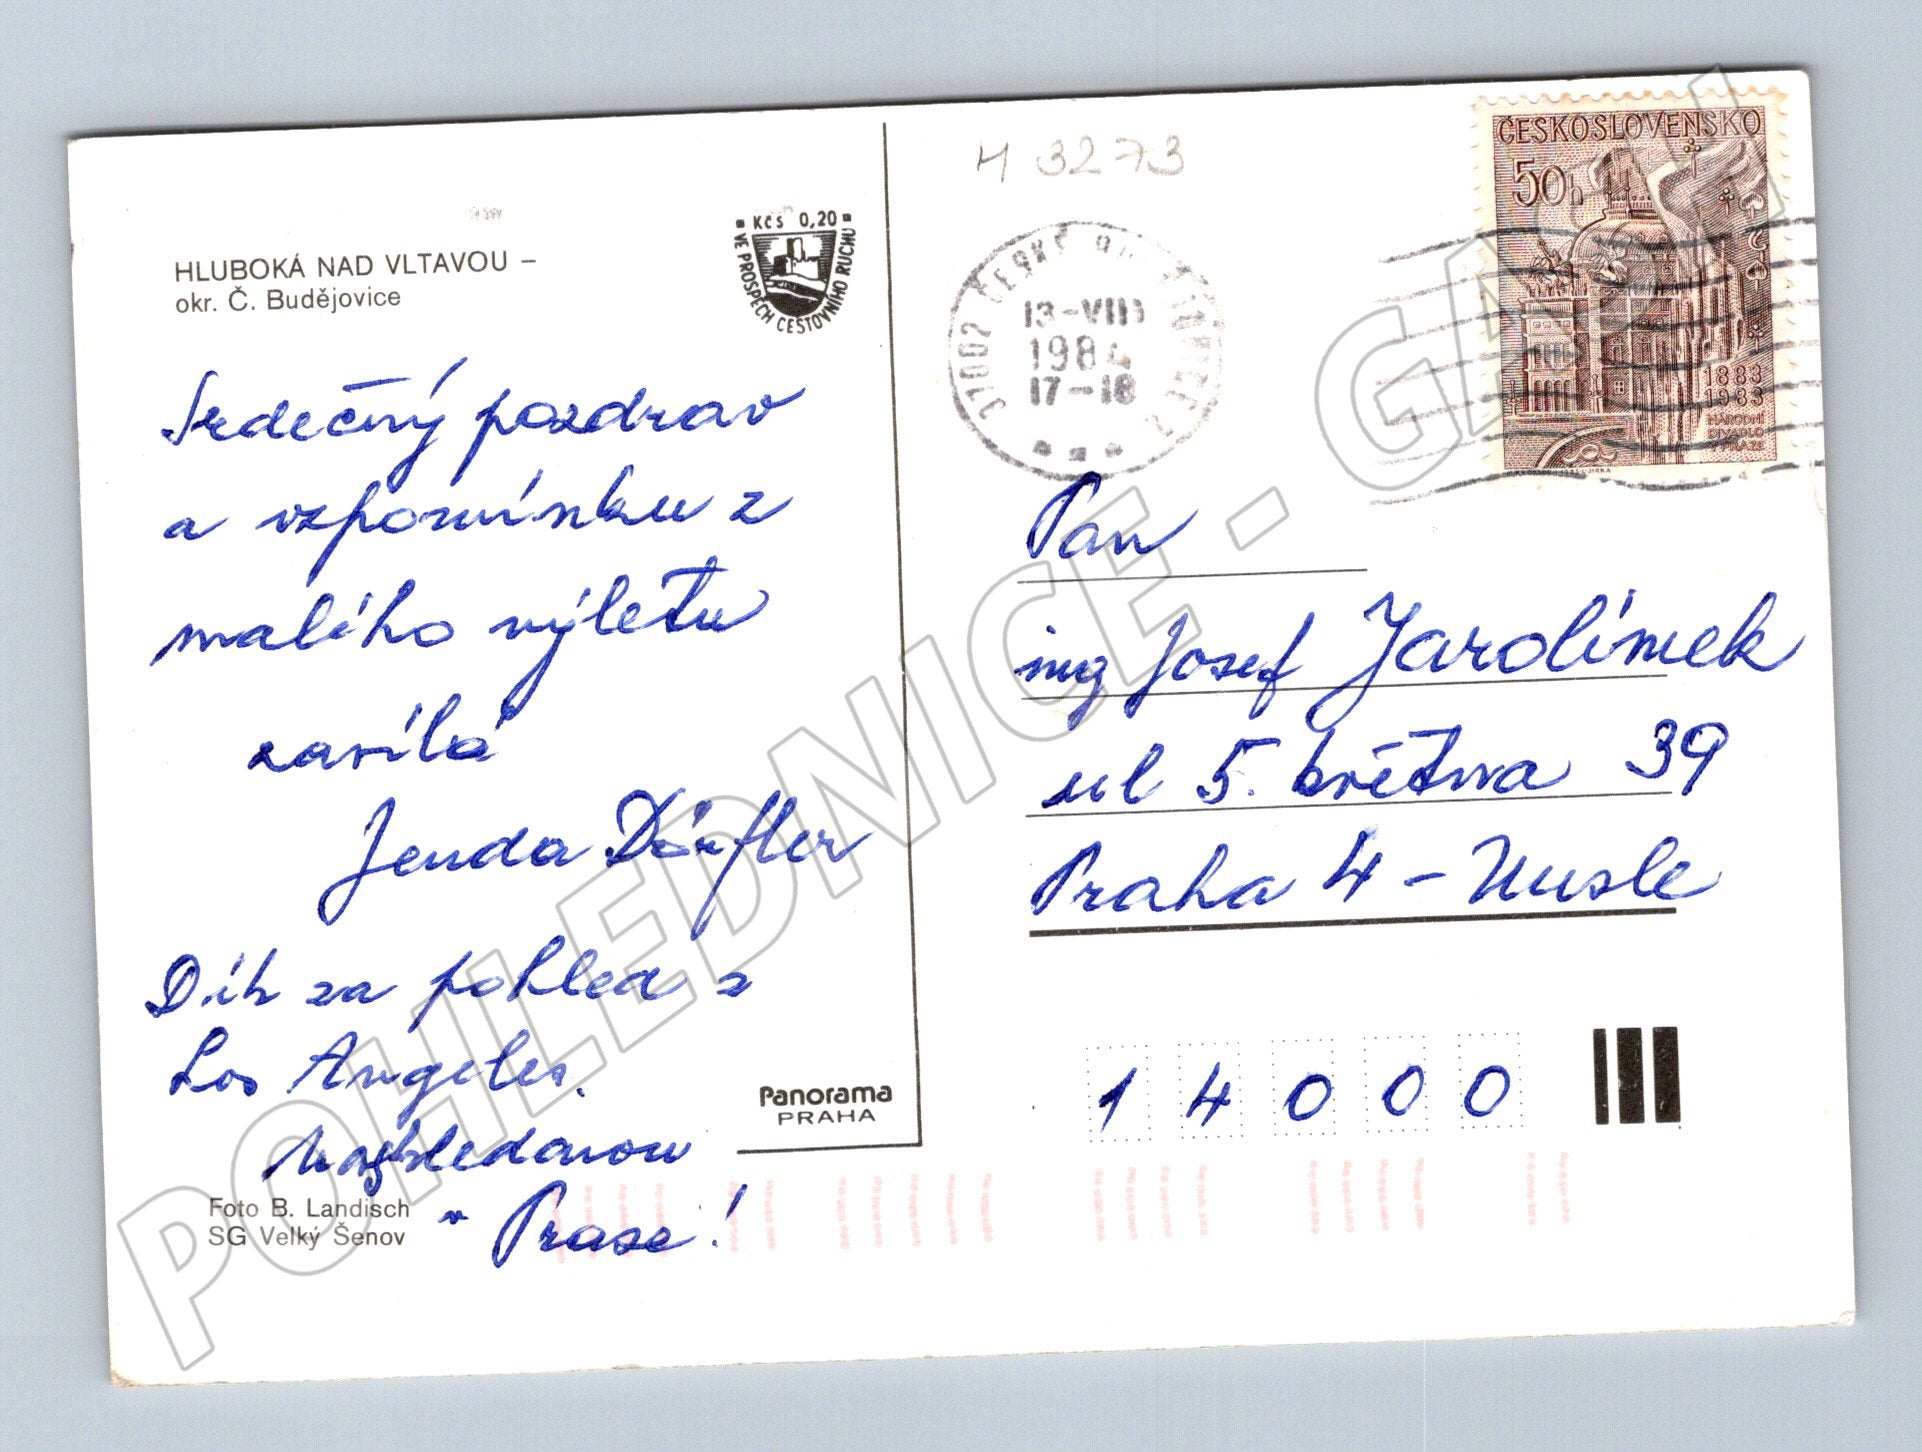 HLUBOKÁ NAD VLTAVOU –
okr. Č. Budějovice
Kčs 0,20
VE PROSPĚCH CESTOVNÍHO RUCHU
Srdečný pozdrav
a vzpomínku z
malého výletu
zasílá
Jenda Dörfler
Dík za pohled z
Los Angeles.
Nashledanou
v Praze!
Foto B. Landisch
SG Velký Šenov
Panorama
PRAHA
3273
37002 ČESKÉ BUDĚJOVICE 2
13-VIII
1984
17-18
ČESKOSLOVENSKO
50h
1883
1983
NÁRODNÍ
DIVADLO
V PRAZE
Pan
ing Josef Jarolímek
ul 5. května 39
Praha 4 - Nusle
14000
POHLEDNICE - GA